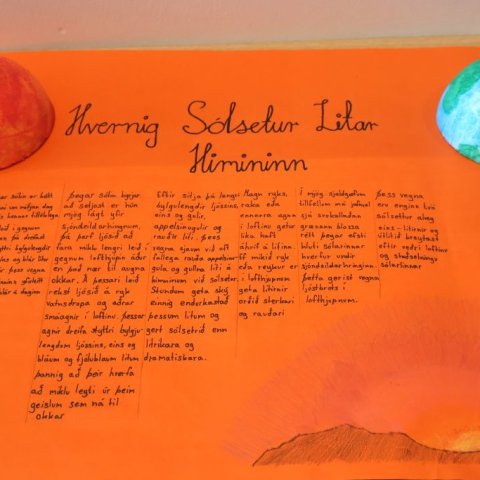 Hvernig Sólsetur Litar
Himininn
sólin er hátt
á
í gegnum
á
bylgjulengdir
og blár litur
þess vegna
himinn
blár á daginn
þegar sólin byrjar
að setjast er hún
mjög lágt yfir
sjóndeildarhringnum,
þá þarf ljósið að
fara mikla lengri leið í
gegnum lofthjúpn áður
en það nær til augna
okkar. Á þessari leið
rekst ljósið á ryk
vatnsdropa og aðrar
smáagnir í loftinu. þessar
agnir dreifa styttri bylgju-
lengdum ljóssins, eins og
bláum og fjólubláum litum
þannig að þeir hverfa
að miklu leyti úr þeim
geislum sem ná til
okkar
Eftir sitja þá lengri
bylgjulengdir ljóssins,
eins og gulir,
appelsínugulir og
rauðir liti. þess
vegna sjáum við oft
fallega rauða appelsínu-
gula og gullna liti á
himninum við sólsetur.
Stundum geta ský
einnig endurkastað
þessum litum og
gert sólsetrið enn
litríkara og
dramatískara.
Magn ryks,
raka eða
annarra agna
í loftinu getur
líka haft
áhrif á litina.
Ef mikið ryk
eða reykur er
í lofthjúpnum
geta litirnir
orðið sterkari
og rauðari
í mjög sjaldgæfum
tilfellum má jafnvel
sjá svokallaðan
grænann blossa
rétt þegar efsti
hluti sólarinnar
hverfur undir
sjóndeildarhringinn.
þetta gerist vegna
ljósbrots í
lofthjúpnum.
þess vegna
eru enginn tvö
sólsetur alveg
eins - litirnir og
útlitið breytast
eftir veðri loftinu
og staðsetningu
sólarinnar